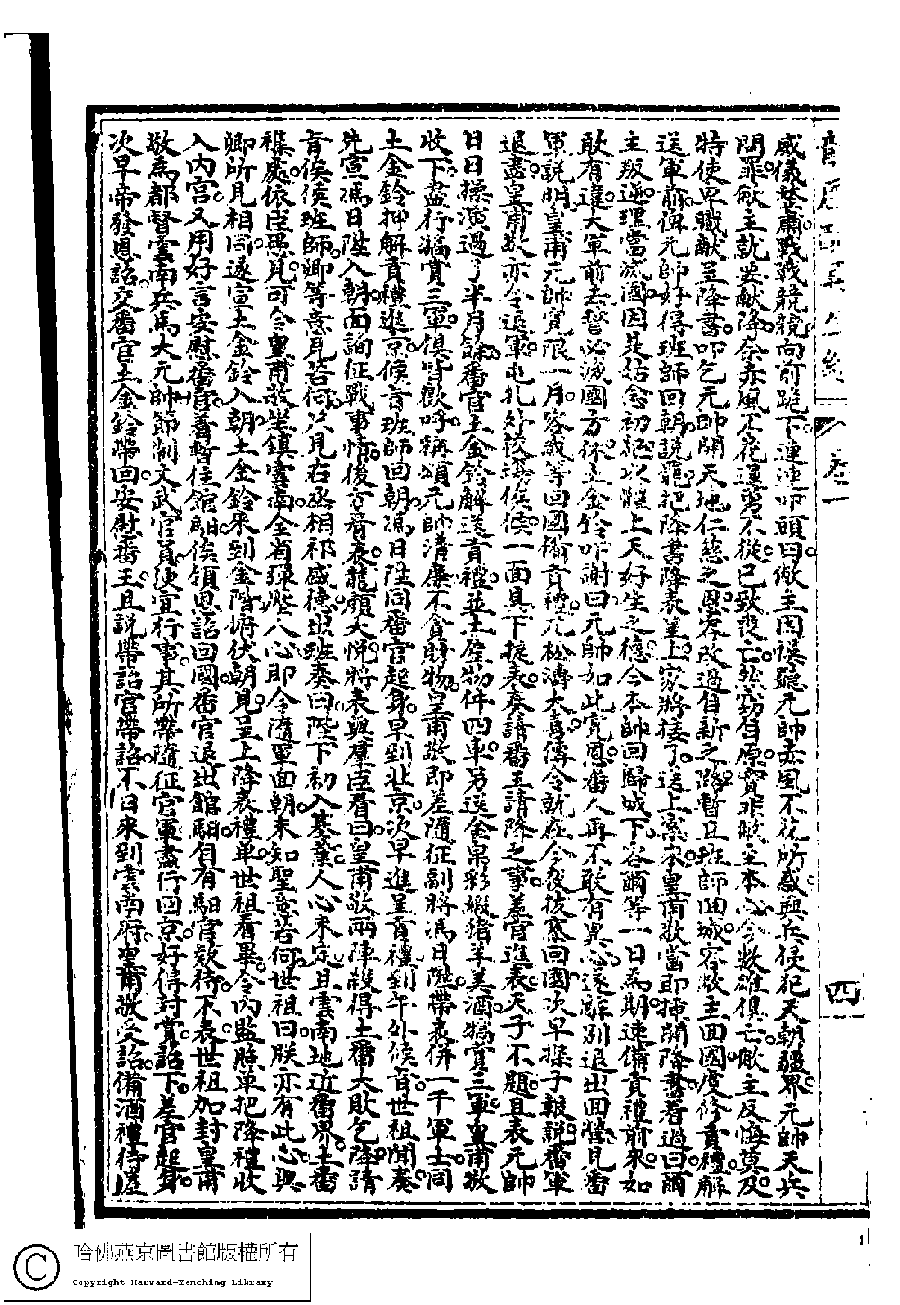 卷一
四
威儀整肅戰戰兢兢向前跪下連連叩頭曰敝主因誤聽元帥赤風不花所惑興兵侵犯天朝疆界元帥天兵
問罪敝主就要獻降奈赤風不花還男不從已致喪亡然總自原實非敝主本心今數雄俱亡敝主反悔莫及
特使卑職獻呈降書叩乞元帥開天地仁慈之恩容改過自新之路暫且班師回城容敝主回國度修貢禮解
送軍前俾元帥好得班師回朝說罷把降書降表呈上家將接了送上案來皇甫敬當即拆開降書看過曰爾
主叛逆理當滅國因其姑念初犯以體上天好生之德今本帥回歸城下容爾等一日為期速備貢禮前來如
敢有違大軍前去誓必滅國方休土金鈴叩謝曰元帥如此寬恩番人再不敢有異心遂辭別退出回營見番
軍說明皇甫元帥寬限一月容我等回國備貢禮元松濤大喜傳令就在今夜拔寨回國次早探子報說番軍
退盡皇甫敬亦令退軍屯扎好候旨一面具下表奏請番王請降之事差官進表天子不題且表元帥
日日操演過了半月餘番官土金鈴解送貢禮並土產物件四車另送金帛彩緞猪羊美酒犒賞三軍皇甫敬
收下盡行犒賞三軍俱皆歡呼稱頌元帥清廉不貪財物皇甫敬即差隨征副將馮日陞帶表併一千軍士同
土金鈴押解貢禮進京候旨班師回朝馮日陞同番官起身早到北京次早進呈貢禮到午外候旨世祖聞奏
先宣馮日陞入朝面詢征戰事情後百番表龍顏大悅將表與羣臣看曰皇甫敬兩陣殺得土番大敗乞降請
旨候候班師卿等意見若何只見右丞相祁盛德出班奏曰陛下初入基業人心未定且雲南地近番界土番
襍處依臣愚見可令皇甫敬坐鎮雲南全省彈壓人心即令隨軍面朝未知聖意若何世祖曰朕亦有此心與
卿所見相同遂宣土金鈴入朝土金鈴來到金階俯伏朝見呈上降表禮單世祖看畢令內監照單把降禮收
入內宮又用好言安慰番官着暫住館駟候領恩詔回國番官退出館駟自有駟官欸待不表世祖加封皇甫
敬為都督雲南兵馬大元帥節制文武官員便宜行事其所帶隨征官軍盡行回京好得封賞詔下差官起身
次早帝發恩詔交番官土金鈴帶回安慰番王且說帶詔官帶詔不日來到雲南府皇甫敬受詔備酒禮待差
1
哈佛燕京圖書館版權所有
Copyright Harvard-Yenching Library